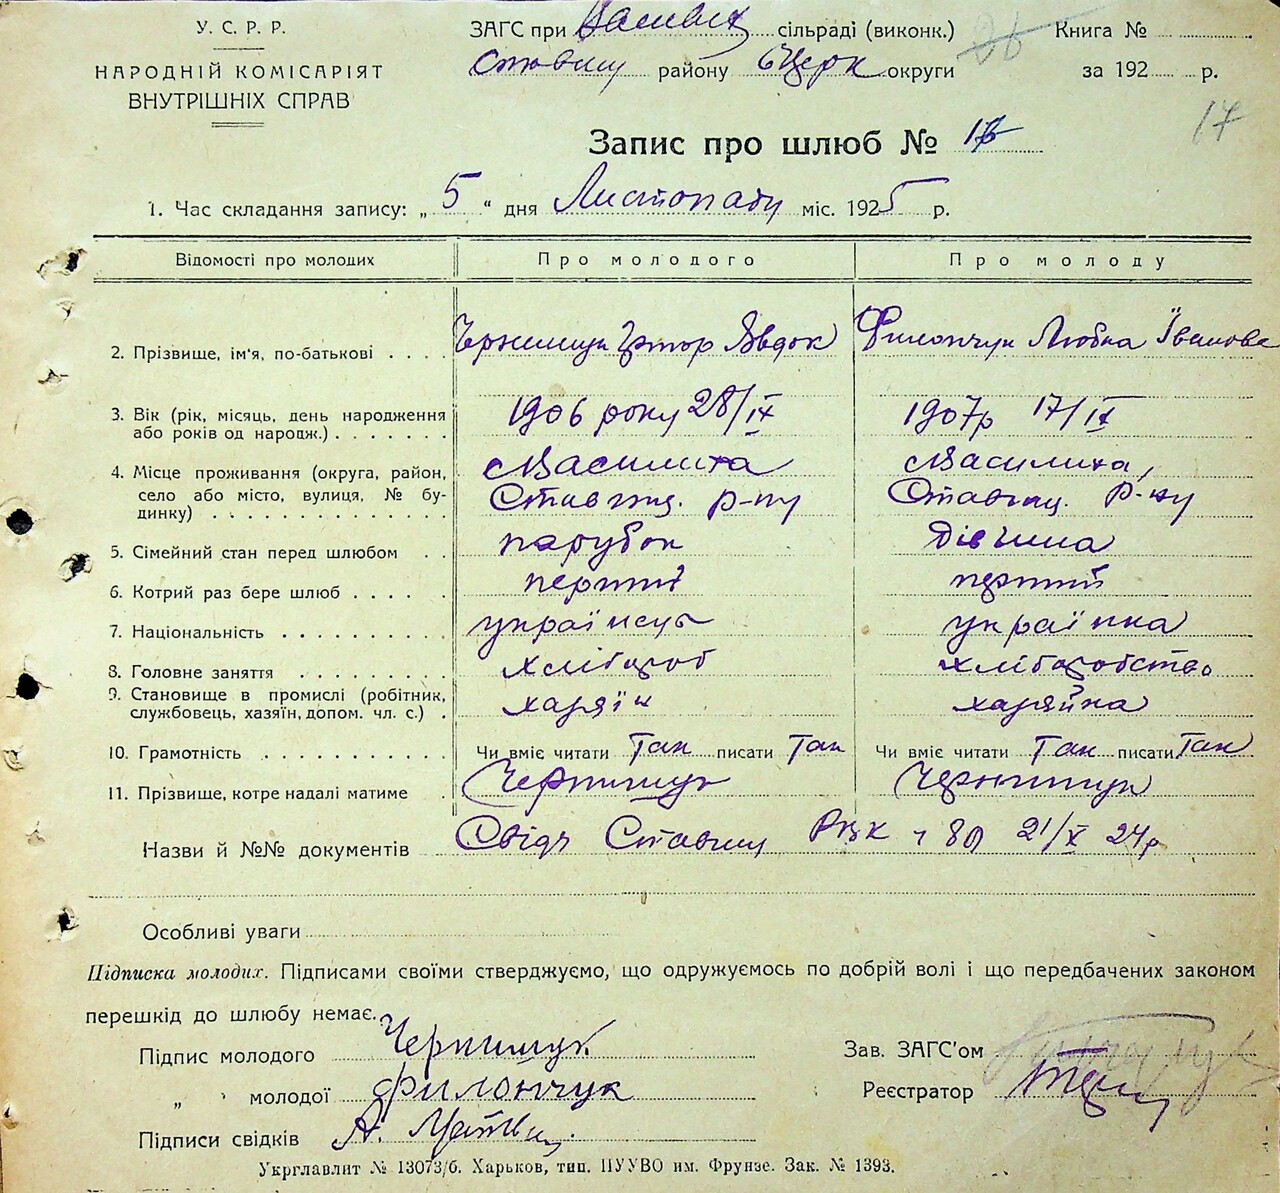 У. С. Р. Р.
НАРОДНІЙ КОМІСАРІЯТ
ВНУТРІШНІХ СПРАВ
ЗАГС при сільраді (виконк.)
району округи
Книга №
за 192 р.
26
17
Запис про шлюб №
1. Час складання запису: „5“ дня Листопаду міс. 1925 р.
Відомості про молодих Про молодого Про молоду
2. Прізвище, ім'я, по-батькові Любка Іванова
3. Вік (рік, місяць, день народження 1906 року 28/IX 1907р 17/IX
або років од народж.)
4. Місце проживання (округа, район, Василиха Василиха,
село або місто, вулиця, № бу- Ставищ. р-ну Ставищ. р-ну
динку)
5. Сімейний стан перед шлюбом парубок дівчина
6. Котрий раз бере шлюб перший перший
7. Національність українець українка
8. Головне заняття хлібороб хліборобство
9. Становище в промислі (робітник,
службовець, хазяїн, допом. чл. с.) хазяїн хазяйка
10. Грамотність Чи вміє читати Так писати Так Чи вміє читати Так писати Так
11. Прізвище, котре надалі матиме Чернишук Чернишук
Назви й №№ документів Свідч Ставищ 80 21/X 24р
Особливі уваги
Підписка молодих. Підписами своїми стверджуємо, що одружуємось по добрій волі і що передбачених законом
перешкід до шлюбу немає.
Підпис молодого Чернишук
„ молодої Филончук
Підписи свідків А.
Зав. ЗАГС'ом
Реєстратор
Укрглавлит № 13073/б. Харьков, тип. ПУУВО им. Фрунзе. Зак. № 1393.